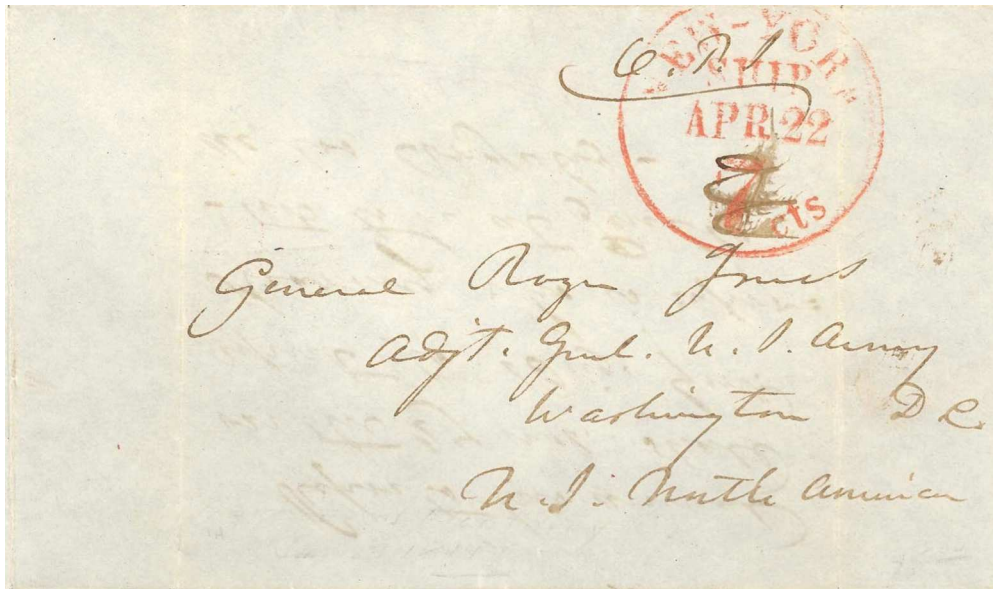 NEW-YORK
SHIP
APR 22
7 cts
General Roger Jones
Adjt. Genl. U. S. Army
Washington D C.
U. S. North America